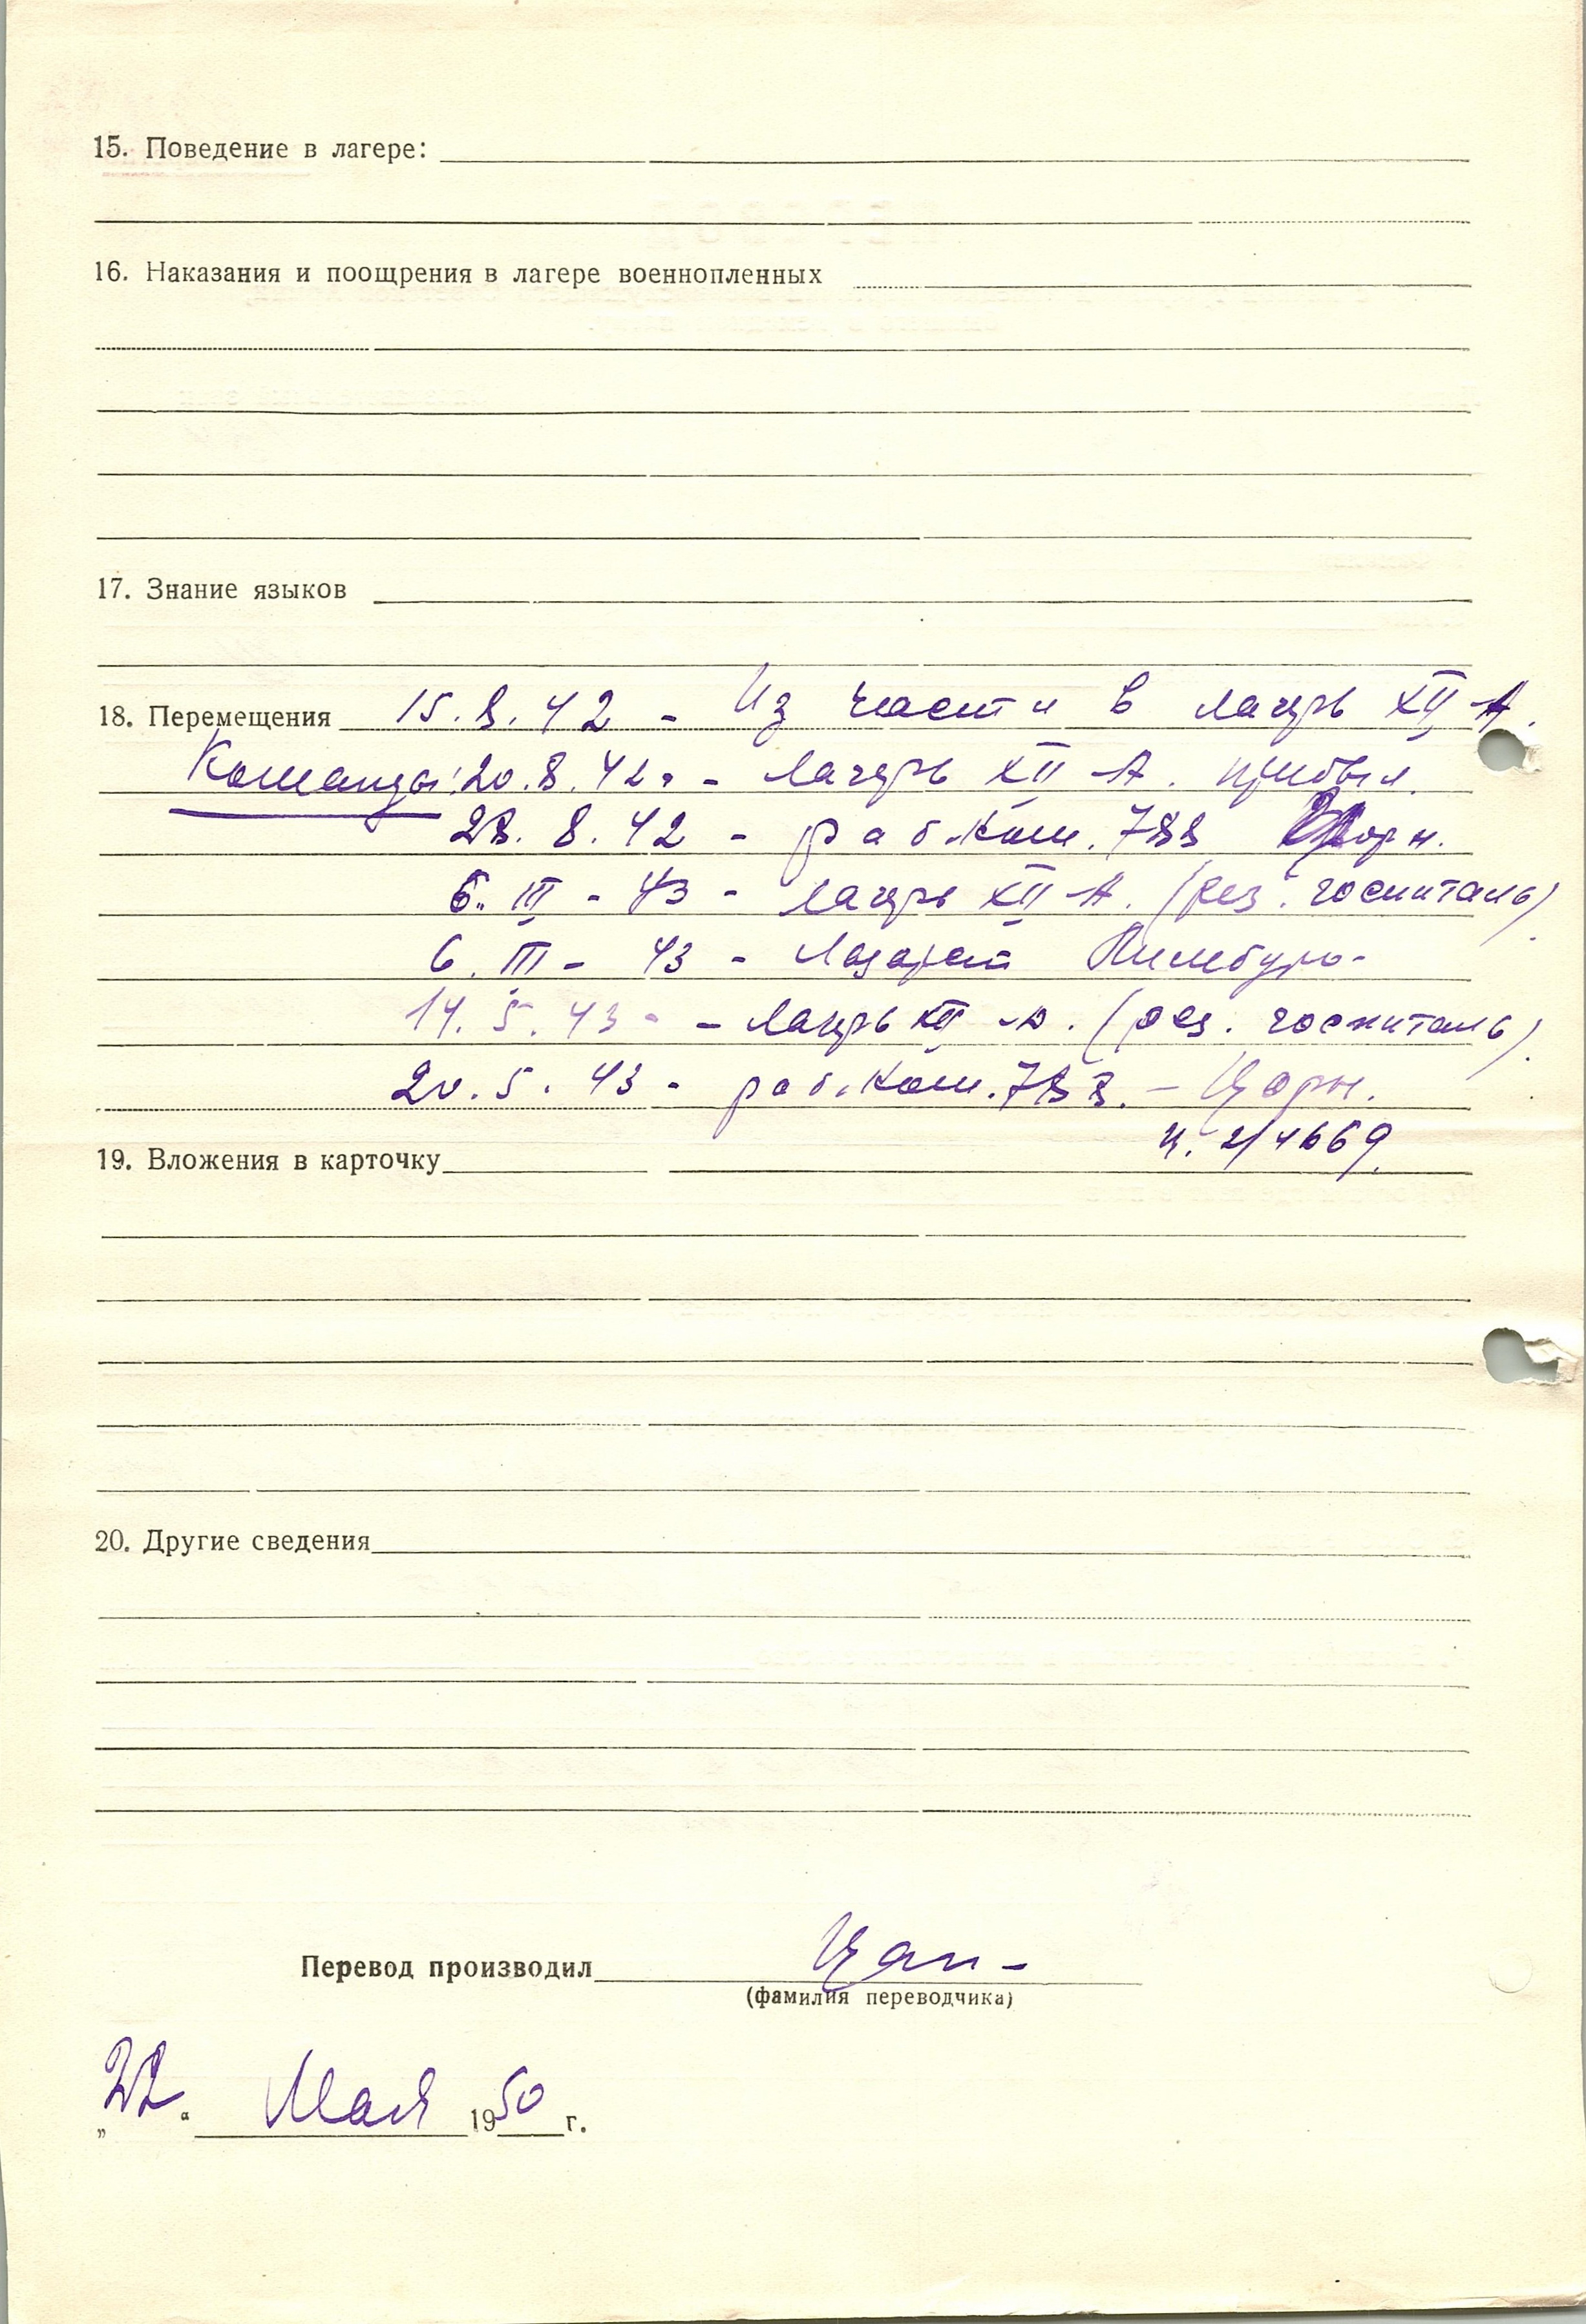 15. Поведение в лагере:
16. Наказания и поощрения в лагере военнопленных
17. Знание языков
18. Перемещения 15.8.42 - Из части в лагерь XII A.
Команды: 20.8.42 г - лагерь XII A. прибыл.
28. 8. 42 - раб.ком. 788 Цорн.
6. III - 43 - лагерь XII A. (рез. госпиталь)
6. III - 43 - Лазарет Лимбург
14. 5. 43 - лагерь XII -А. (рез. госпиталь)
20. 5. 43 - раб.ком. 788. - Цорн.
19. Вложения в карточку н. 2/4669.
20. Другие сведения
Перевод производил Цап-
(фамилия переводчика)
„22“ Мая 1950 г.